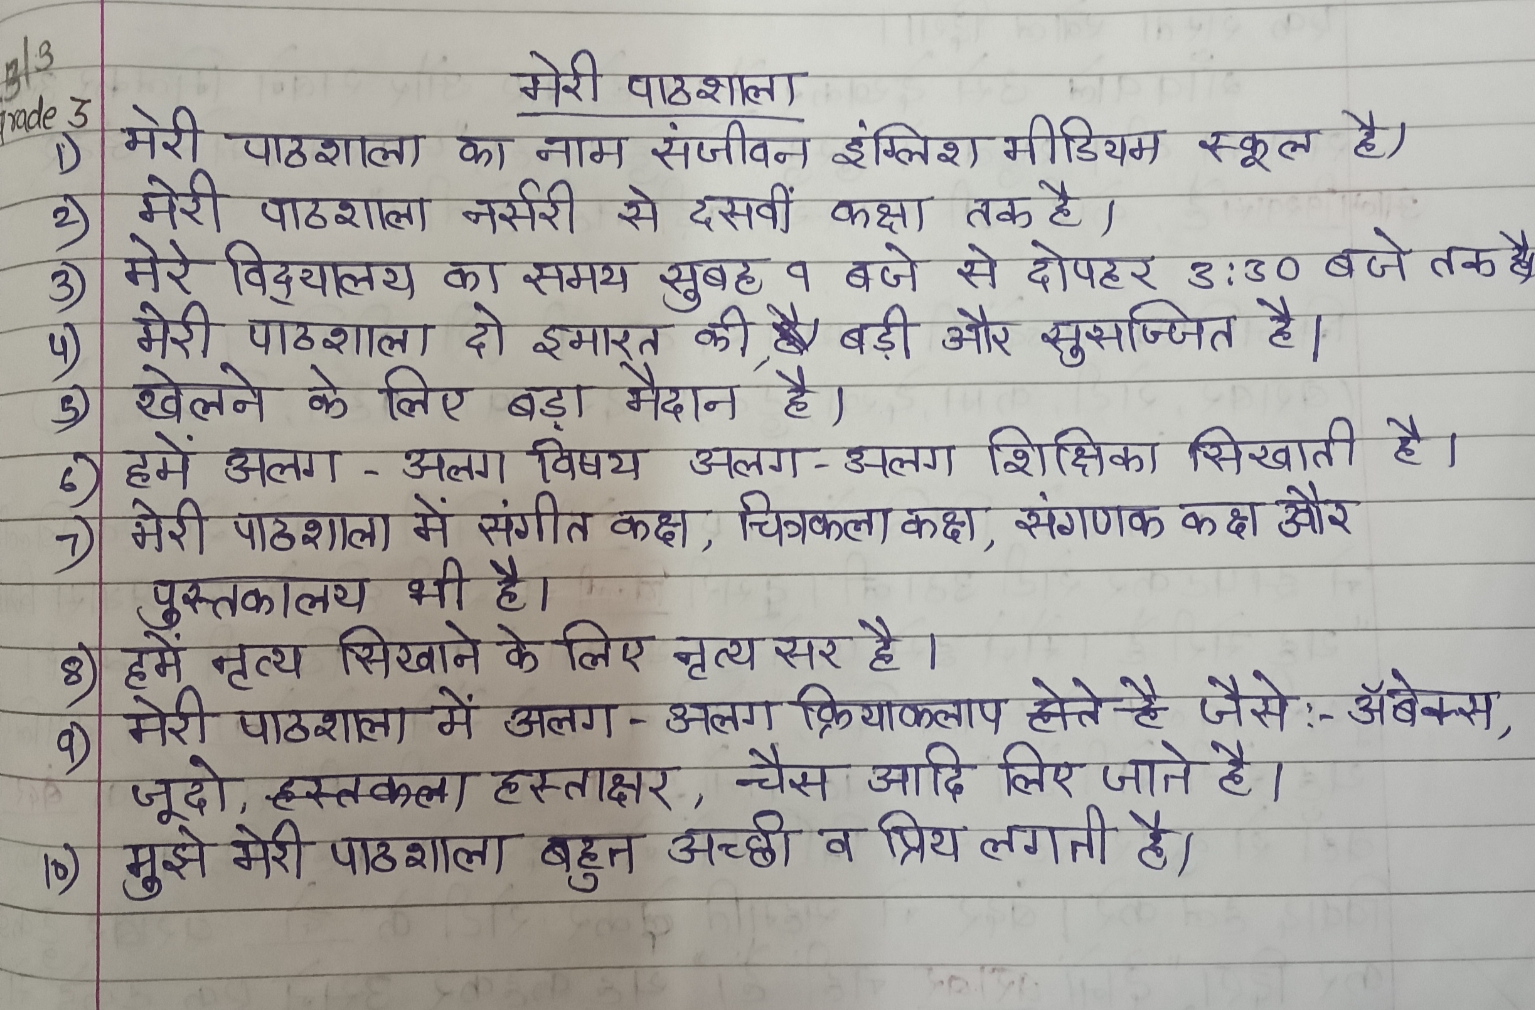 3/3
Grade 5
मेरी पाठशाला
1) मेरी पाठशाला का नाम संजीवन इंग्लिश मीडियम स्कूल है।
2) मेरी पाठशाला नर्सरी से दसवीं कक्षा तक है।
3) मेरे विद्यालय का समय सुबह 9 बजे से दोपहर 3:30 बजे तक है
4) मेरी पाठशाला दो इमारत की, बड़ी और सुसज्जित है।
5) खेलने के लिए बड़ा मैदान है।
6) हमें अलग - अलग विषय अलग - अलग शिक्षिका सिखाती है।
7) मेरी पाठशाला में संगीत कक्ष, चित्रकला कक्ष, संगणक कक्ष और
पुस्तकालय भी है।
8) हमें नृत्य सिखाने के लिए नृत्य सर है।
9) मेरी पाठशाला में अलग - अलग क्रियाकलाप होते है जैसे :- ॲबेकस,
जूदो, हस्तकला हस्ताक्षर, चैस आदि लिए जाते है।
10) मुझे मेरी पाठशाला बहुत अच्छी व प्रिय लगती है।